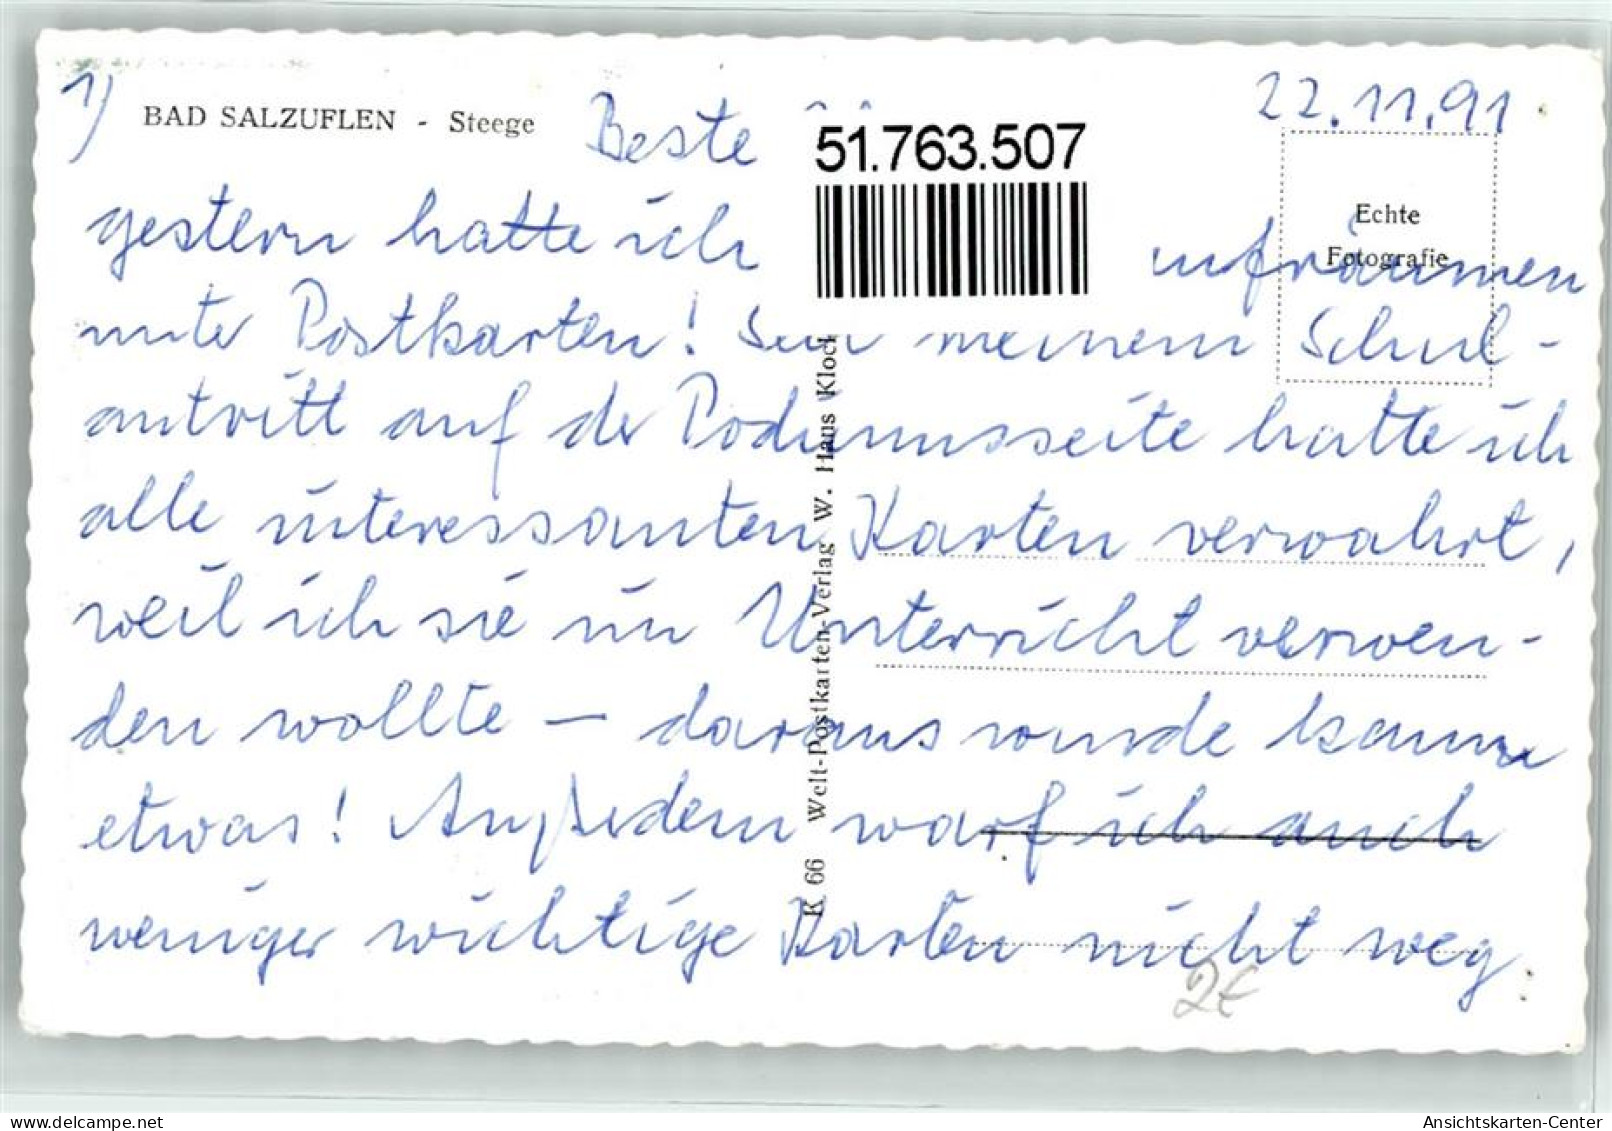 1) BAD SALZUFLEN - Steege Beste 22.11.91
51.763.507
Echte
Fotografie
gestern hatte ich ufräumen
unter Postkarten! Seit meinem Schul-
antritt auf der Podiumsseite hatte ich
alle interessanten Karten verwahrt,
weil ich sie im Unterricht verwen-
den wollte – daraus wurde kaum
etwas! Außerdem warf ich auch
weniger wichtige Karten nicht weg:
2€
K 66 Welt-Postkarten-Verlag W. Haus Klock
delcampe.net
Ansichtskarten-Center